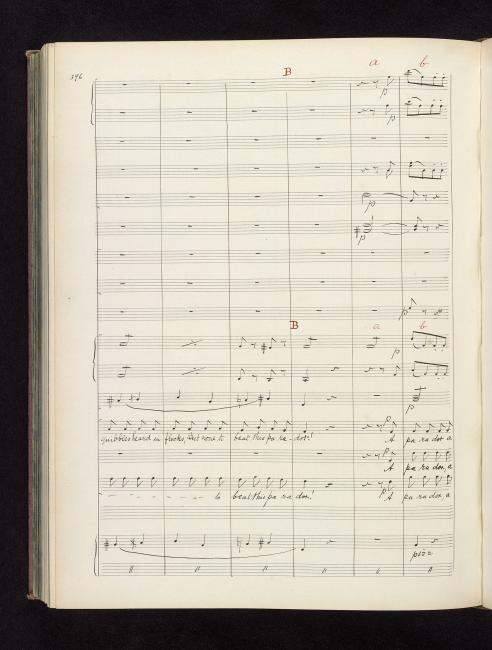 396
B
a b
p
p
p
p
p
B
a b
p
p
quibbles heard in flocks, But none to beat this pa-ra-dox! A pa ra dox, a
A pa ra dox, a
to beat this pa ra dox! A pa ra dox, a
pizz